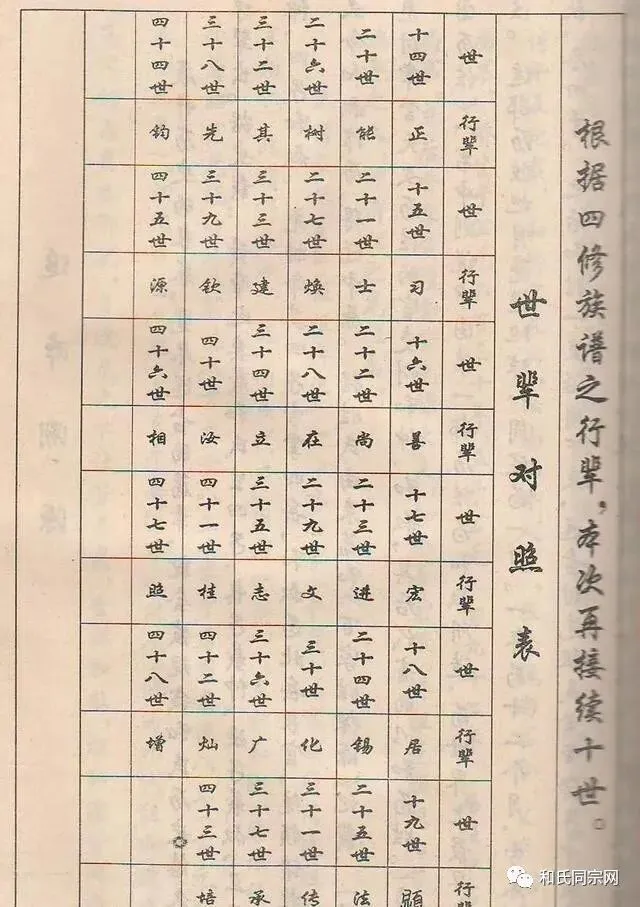 根据四修族谱之行辈，本次再接续十世。
世辈对照表
世 行辈 世 行辈 世 行辈 世 行辈 世 行辈 世 行辈
十四世 正 十五世 习 十六世 善 十七世 宏 十八世 居 十九世 顕
二十世 能 二十一世 士 二十二世 尚 二十三世 进 二十四世 锡 二十五世 法
二十六世 树 二十七世 焕 二十八世 在 二十九世 文 三十世 化 三十一世 传
三十二世 其 三十三世 建 三十四世 立 三十五世 志 三十六世 广 三十七世 承
三十八世 先 三十九世 钦 四十世 汝 四十一世 桂 四十二世 灿 四十三世 培
四十四世 钧 四十五世 源 四十六世 相 四十七世 照 四十八世 增
和氏同宗网